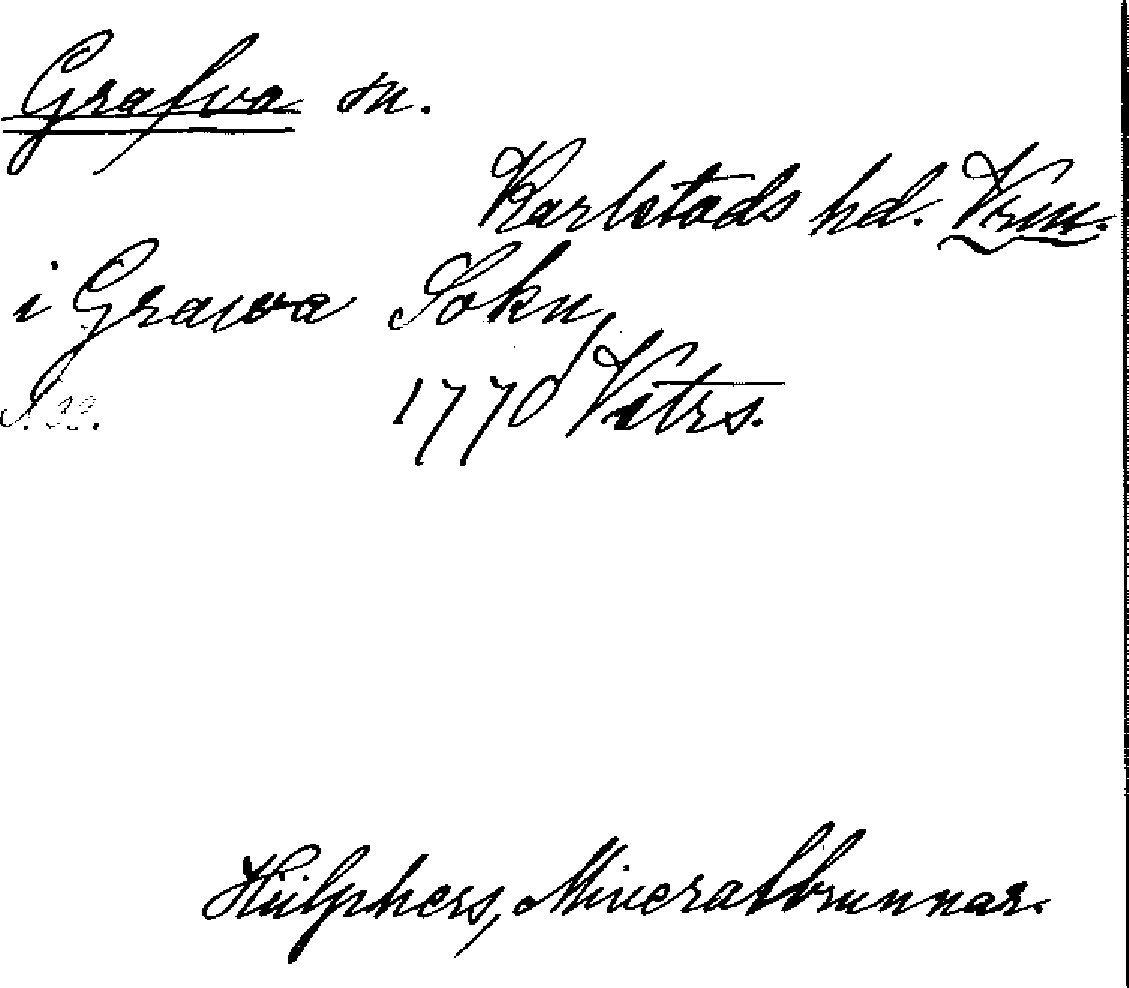 Grafva sn.
Karlstads hd. Vrm.
i Grawa Sokn,
1770 Vitrs.
S. 32.
Hülphers, Mineralbrunnar.